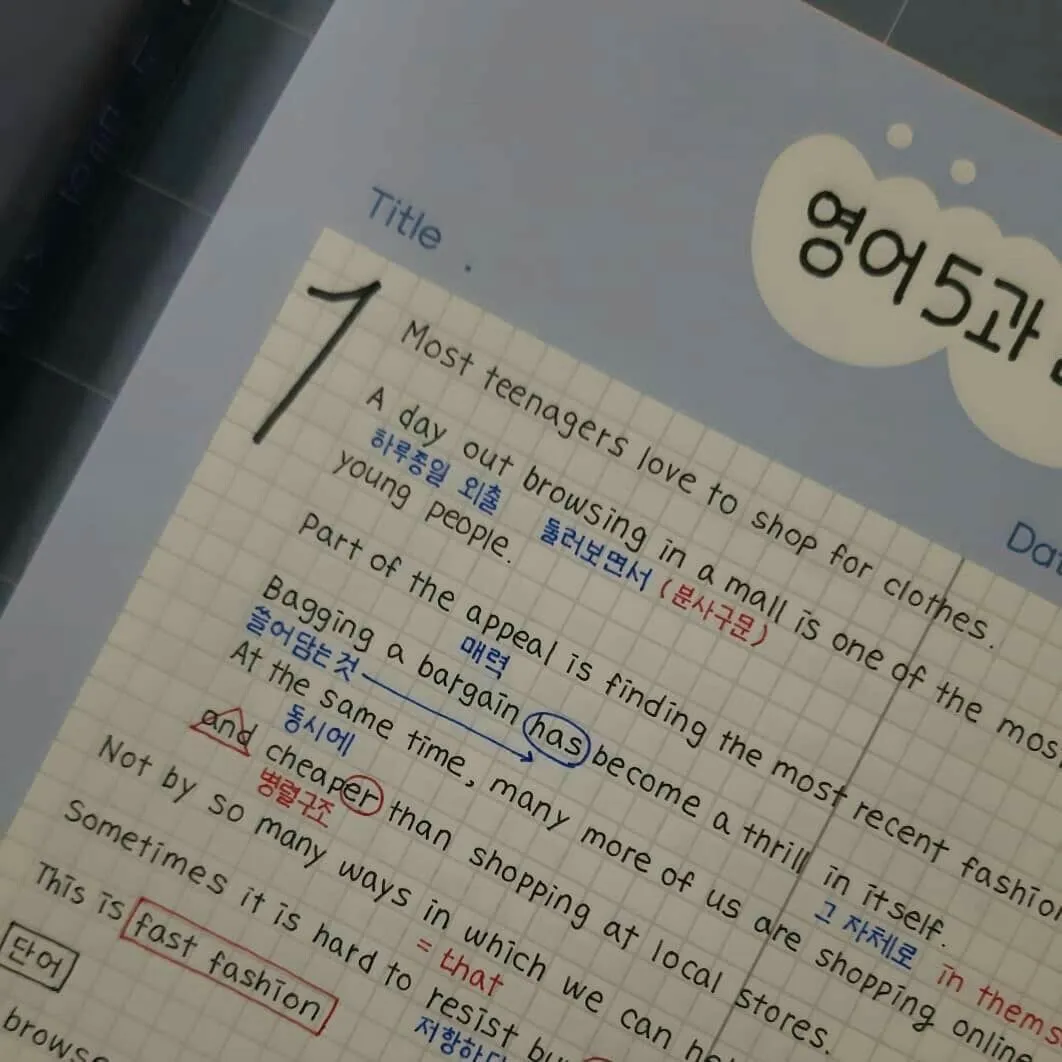 Title .
영어 5과
1
Most teenagers love to shop for clothes.
A day out browsing in a mall is one of the most
하루종일 외출 둘러보면서 (분사구문)
young people.
Part of the appeal is finding the most recent fashion
매력
Bagging a bargain has become a thrill in itself.
쓸어담는 것 그 자체로 in thems
At the same time, many more of us are shopping online
동시에
and cheaper than shopping at local stores.
병렬구조
Not by so many ways in which we can
= that
Sometimes it is hard to resist bu
저항하다
This is fast fashion
단어
browse